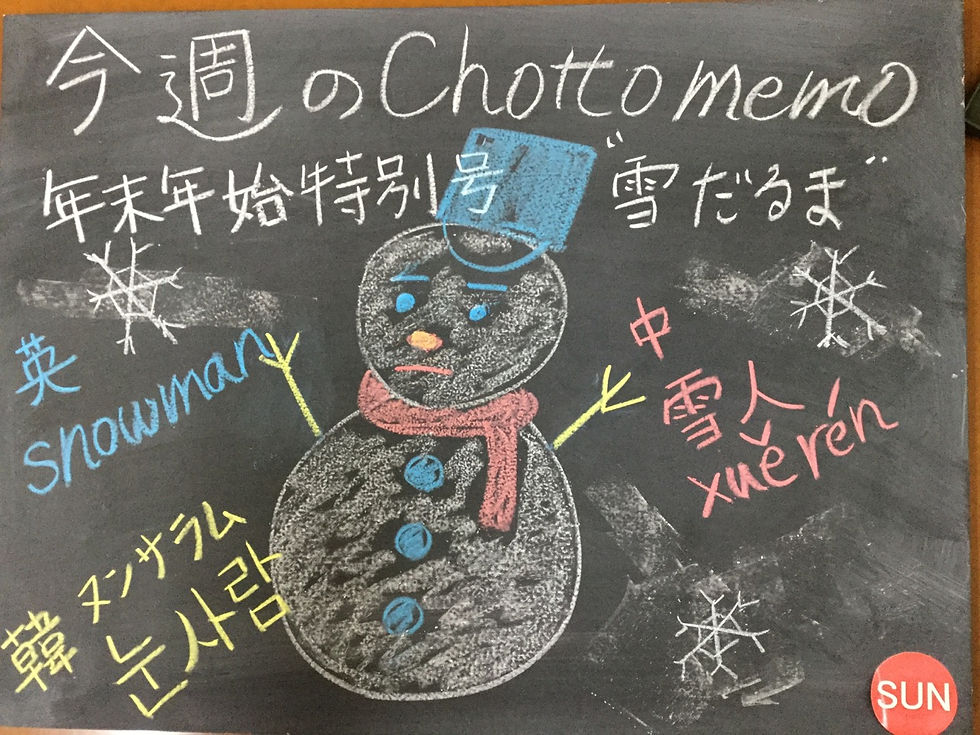 今週のChotto memo
年末年始特別号 "雪だるま"
英
snowman
中
雪人
xuěrén
韓 ヌンサラム
눈사람
SUN